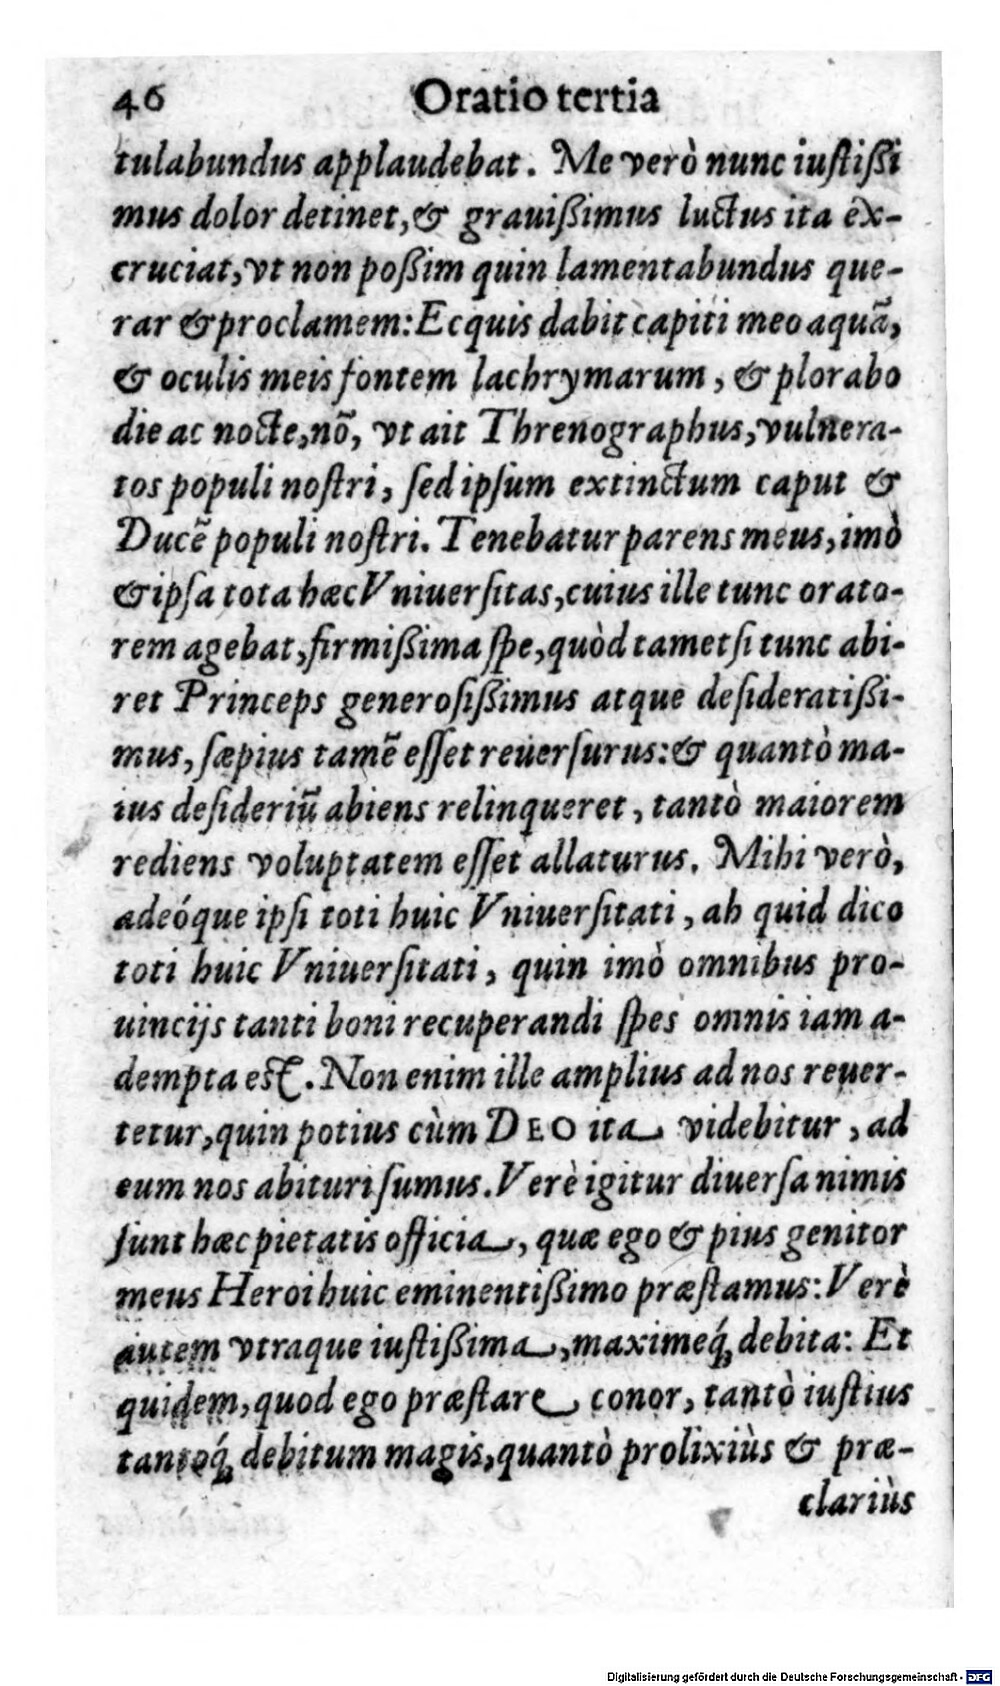 46 Oratio tertia
tulabundus applaudebat. Me verò nunc iustißi
mus dolor detinet, & grauißimus luctus ita ex-
cruciat, vt non poßim quin lamentabundus que-
rar & proclamem: Ecquis dabit capiti meo aquã,
& oculis meis fontem lachrymarum, & plorabo
die ac nocte, nõ, vt ait Threnographus, vulnera-
tos populi nostri, sed ipsum extinctum caput &
Ducẽ populi nostri. Tenebatur parens meus, imò
& ipsa tota hæc Vniuersitas, cuius ille tunc orato-
rem agebat, firmißima spe, quòd tametsi tunc abi-
ret Princeps generosißimus atque desideratißi-
mus, sæpius tamẽ esset reuersurus: & quantò ma-
ius desideriũ abiens relinqueret, tantò maiorem
rediens voluptatem esset allaturus. Mihi verò,
adeóque ipsi toti huic Vniuersitati, ah quid dico
toti huic Vniuersitati, quin imò omnibus pro-
uincijs tanti boni recuperandi spes omnis iam a-
dempta est. Non enim ille amplius ad nos reuer-
tetur, quin potius cùm DEO ita videbitur, ad
eum nos abituri sumus. Verè igitur diuersa nimis
sunt hæc pietatis officia, quæ ego & pius genitor
meus Heroi huic eminentißimo præstamus: Verè
autem vtraque iustißima, maximeq́; debita: Et
quidem, quod ego præstare conor, tantò iustius
tantoq́; debitum magis, quantò prolixiùs & præ-
clariùs
Digitalisierung gefördert durch die Deutsche Forschungsgemeinschaft - DFG